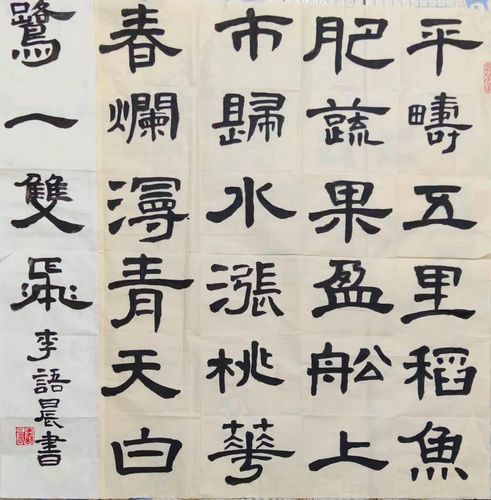 平疇五里稻魚
肥蔬果盈舩上
市歸水漲桃華
春爛漫青天白
鷺一雙飛
李語晨書